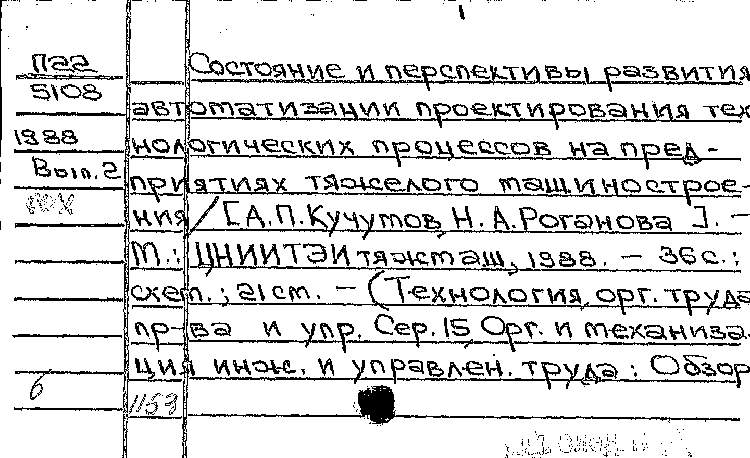 П22
5108
1988
Вып. 2
Состояние и перспективы развития
автоматизации проектирования тех
нологических процессов на пред-
приятиях тяжелого машинострое-
ния / [А.П. Кучумов, Н.А. Роганова ]. -
М.: ЦНИИТЭИтяжмаш, 1988. - 36 с.:
схем.; 21 см. - (Технология, орг. труда
пр-ва и упр. Сер. 15, Орг. и механиза-
ция инж. и управлен. труда: Обзор
6
1159